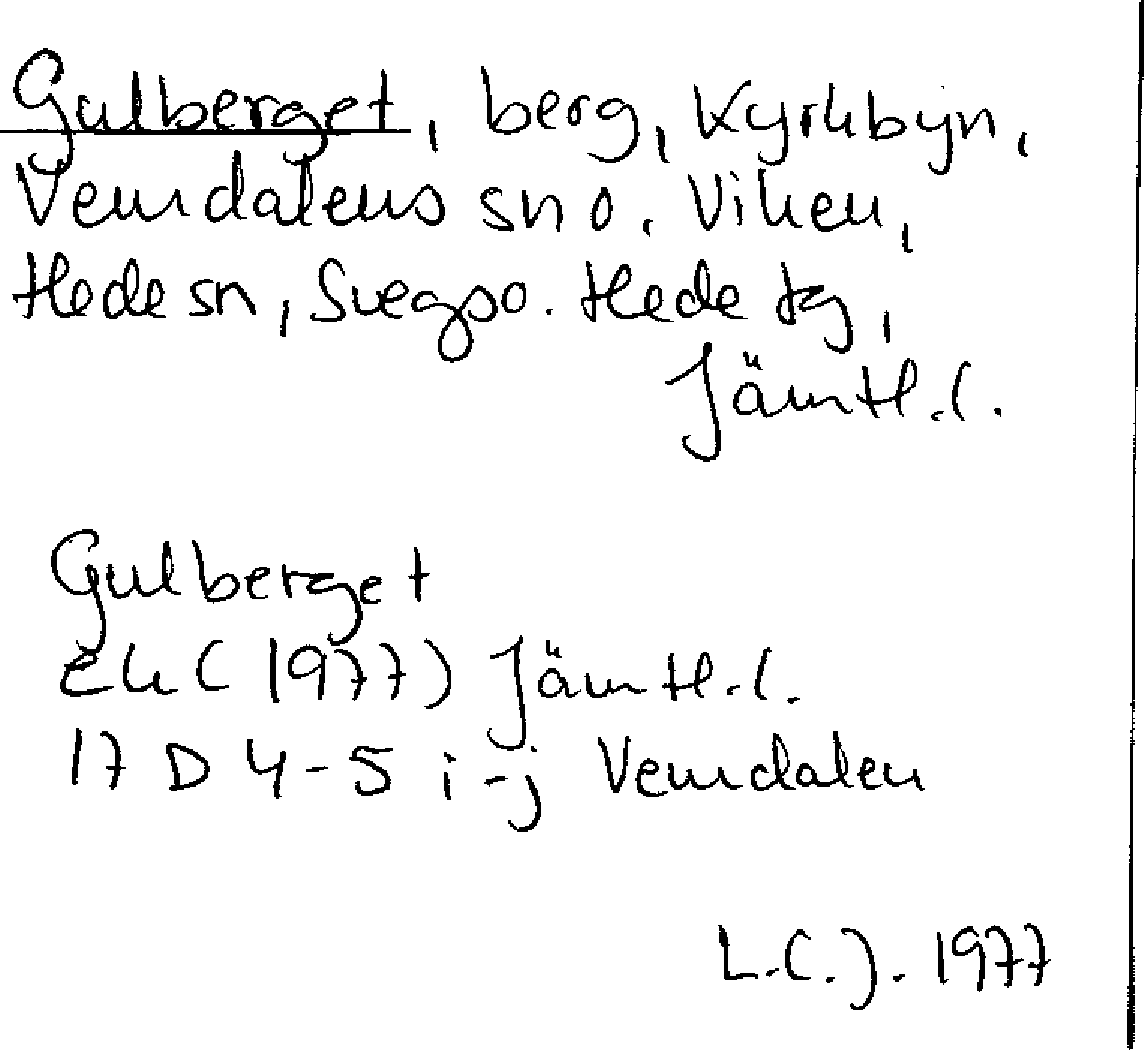 Gulberget, berg, Kyrkbyn,
Vemdalens sn o. Viken,
Hede sn, Svegs o. Hede tg,
Jämtl.l.
Gulberget
Ek (1977) Jämtl.l.
17 D 4-5 i-j Vemdalen
L.C.J. 1977